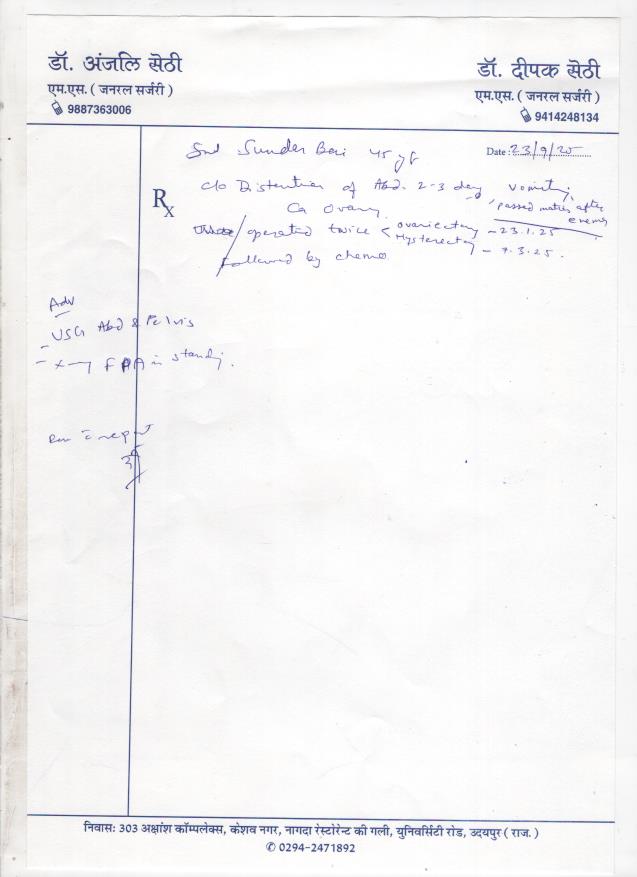 डॉ. अंजलि सेठी
एम.एस. ( जनरल सर्जरी )
9887363006
डॉ. दीपक सेठी
एम.एस. ( जनरल सर्जरी )
9414248134
Smt Sunder Bai 45 yf
Date : 23/9/25
Rx
c/o Distention of Abd. 2-3 day, Vomiting,
passed motion after enema
Ca Ovary
operated twice < ovariectomy - 23.1.25
Hysterectomy - 7.3.25.
followed by chemo.
Adv
USG Abd & Pelvis
- X-ray FPA in standing.
Rev c report
निवासः 303 अक्षांश कॉम्पलेक्स, केशव नगर, नागदा रेस्टोरेन्ट की गली, युनिवर्सिटी रोड, उदयपुर ( राज. )
✆ 0294-2471892